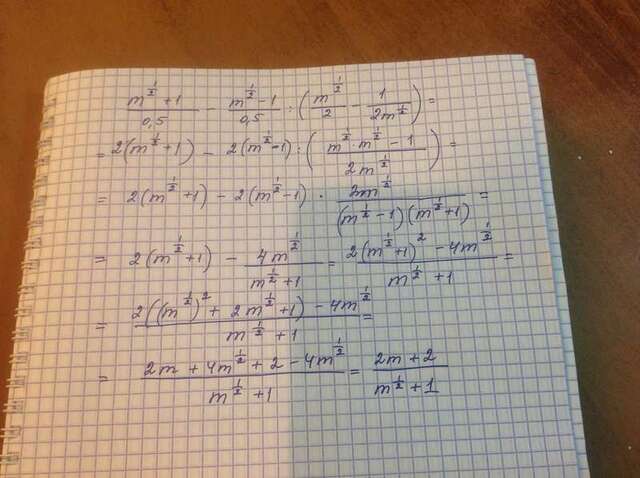 (m^(1/2) + 1)/0,5 - (m^(1/2) - 1)/0,5 : (m^(1/2)/2 - 1/(2m^(1/2))) =
= 2(m^(1/2) + 1) - 2(m^(1/2) - 1) : ((m^(1/2) · m^(1/2) - 1)/(2m^(1/2))) =
= 2(m^(1/2) + 1) - 2(m^(1/2) - 1) · 2m^(1/2)/((m^(1/2) - 1)(m^(1/2) + 1)) =
= 2(m^(1/2) + 1) - 4m^(1/2)/(m^(1/2) + 1) = (2(m^(1/2) + 1)^2 - 4m^(1/2))/(m^(1/2) + 1) =
= (2((m^(1/2))^2 + 2m^(1/2) + 1) - 4m^(1/2))/(m^(1/2) + 1) =
= (2m + 4m^(1/2) + 2 - 4m^(1/2))/(m^(1/2) + 1) = (2m + 2)/(m^(1/2) + 1)